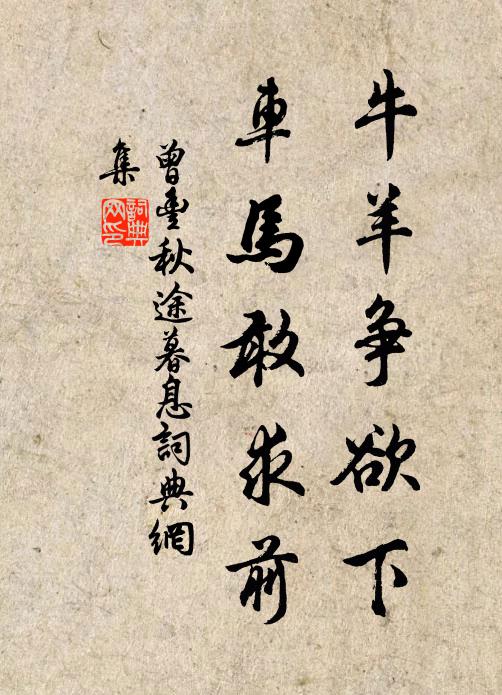 牛羊争欲下
車馬敢求前
曾豐秋途暮息詞典網
集
詞典
网印